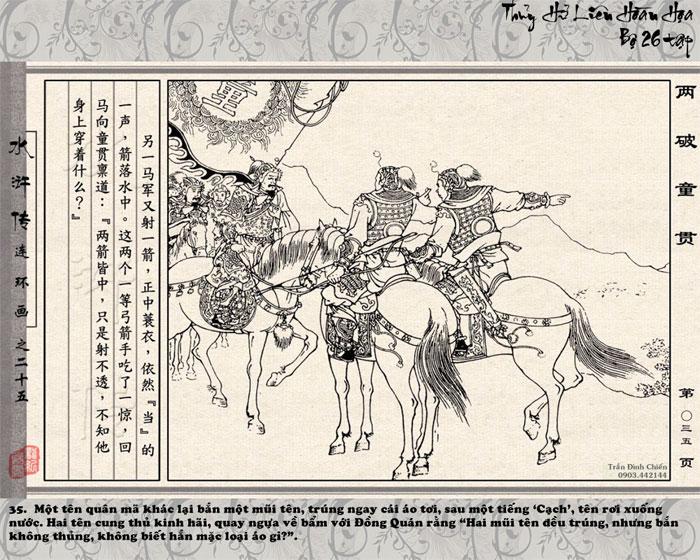 Thủy Hử Liên Hoàn Họa
Bộ 26 tập
两破童贯
水浒传连环画之二十五
另一马军又射一箭，正中蓑衣，依然『当』的
一声，箭落水中。这两个一等弓箭手吃了一惊，回
马向童贯禀道：『两箭皆中，只是射不透，不知他
身上穿着什么？』
童
第〇三五页
Trần Đình Chiến
0903.442144
35. Một tên quân mã khác lại bắn một mũi tên, trúng ngay cái áo tơi, sau một tiếng ‘Cạch’, tên rơi xuống
nước. Hai tên cung thủ kinh hãi, quay ngựa về bẩm với Đồng Quán rằng “Hai mũi tên đều trúng, nhưng bắn
không thủng, không biết hắn mặc loại áo gì?”.